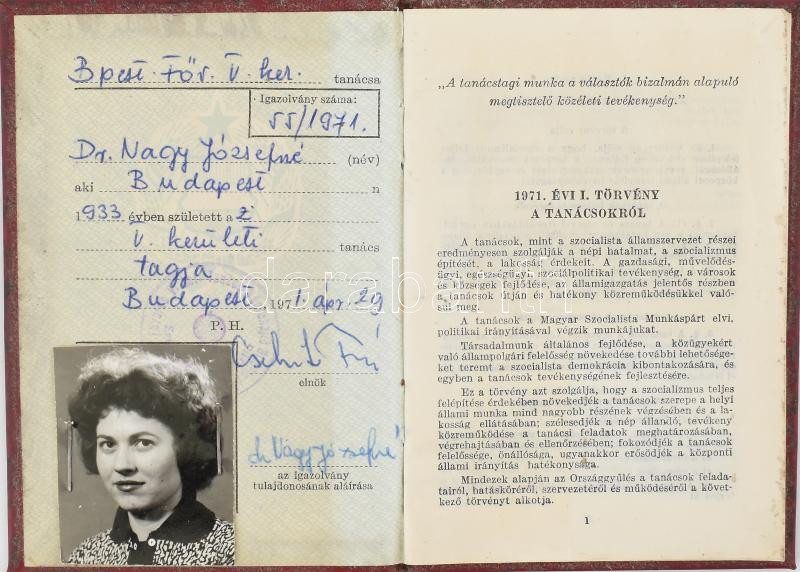 Bpest. Főv. V. ker. tanácsa
Igazolvány száma:
55/1971.
Dr. Nagy Józsefné (név)
aki Budapest n
1933 évben született a
V. kerületi tanács
tagja
Budapest, 1971. ápr. 29
P. H.
elnök
dr Nagy Józsefné
az igazolvány
tulajdonosának aláírása
„A tanácstagi munka a választók bizalmán alapuló
megtisztelő közéleti tevékenység."
1971. ÉVI I. TÖRVÉNY
A TANÁCSOKRÓL
A tanácsok, mint a szocialista államszervezet részei
eredményesen szolgálják a népi hatalmat, a szocializmus
építését, a lakosság érdekeit. A gazdasági, művelődés-
ügyi, egészségügyi, szociálpolitikai tevékenység, a városok
és községek fejlődése, az államigazgatás jelentős részben
a tanácsok útján és hatékony közreműködésükkel való-
sul meg.
A tanácsok a Magyar Szocialista Munkáspárt elvi,
politikai irányításával végzik munkájukat.
Társadalmunk általános fejlődése, a közügyekért
való állampolgári felelősség növekedése további lehetősége-
ket teremt a szocialista demokrácia kibontakozására, és
egyben a tanácsok tevékenységének fejlesztésére.
Ez a törvény azt szolgálja, hogy a szocializmus teljes
felépítése érdekében növekedjék a tanácsok szerepe a helyi
állami munka mind nagyobb részének végzésében és a la-
kosság ellátásában; szélesedjék a nép állandó, tevékeny
közreműködése a tanácsi feladatok meghatározásában,
végrehajtásában és ellenőrzésében; fokozódjék a tanácsok
felelőssége, önállósága, ugyanakkor erősödjék a központi
állami irányítás hatékonysága.
Mindezek alapján az Országgyűlés a tanácsok felada-
tairól, hatásköréről, szervezetéről és működéséről a követ-
kező törvényt alkotja.
1